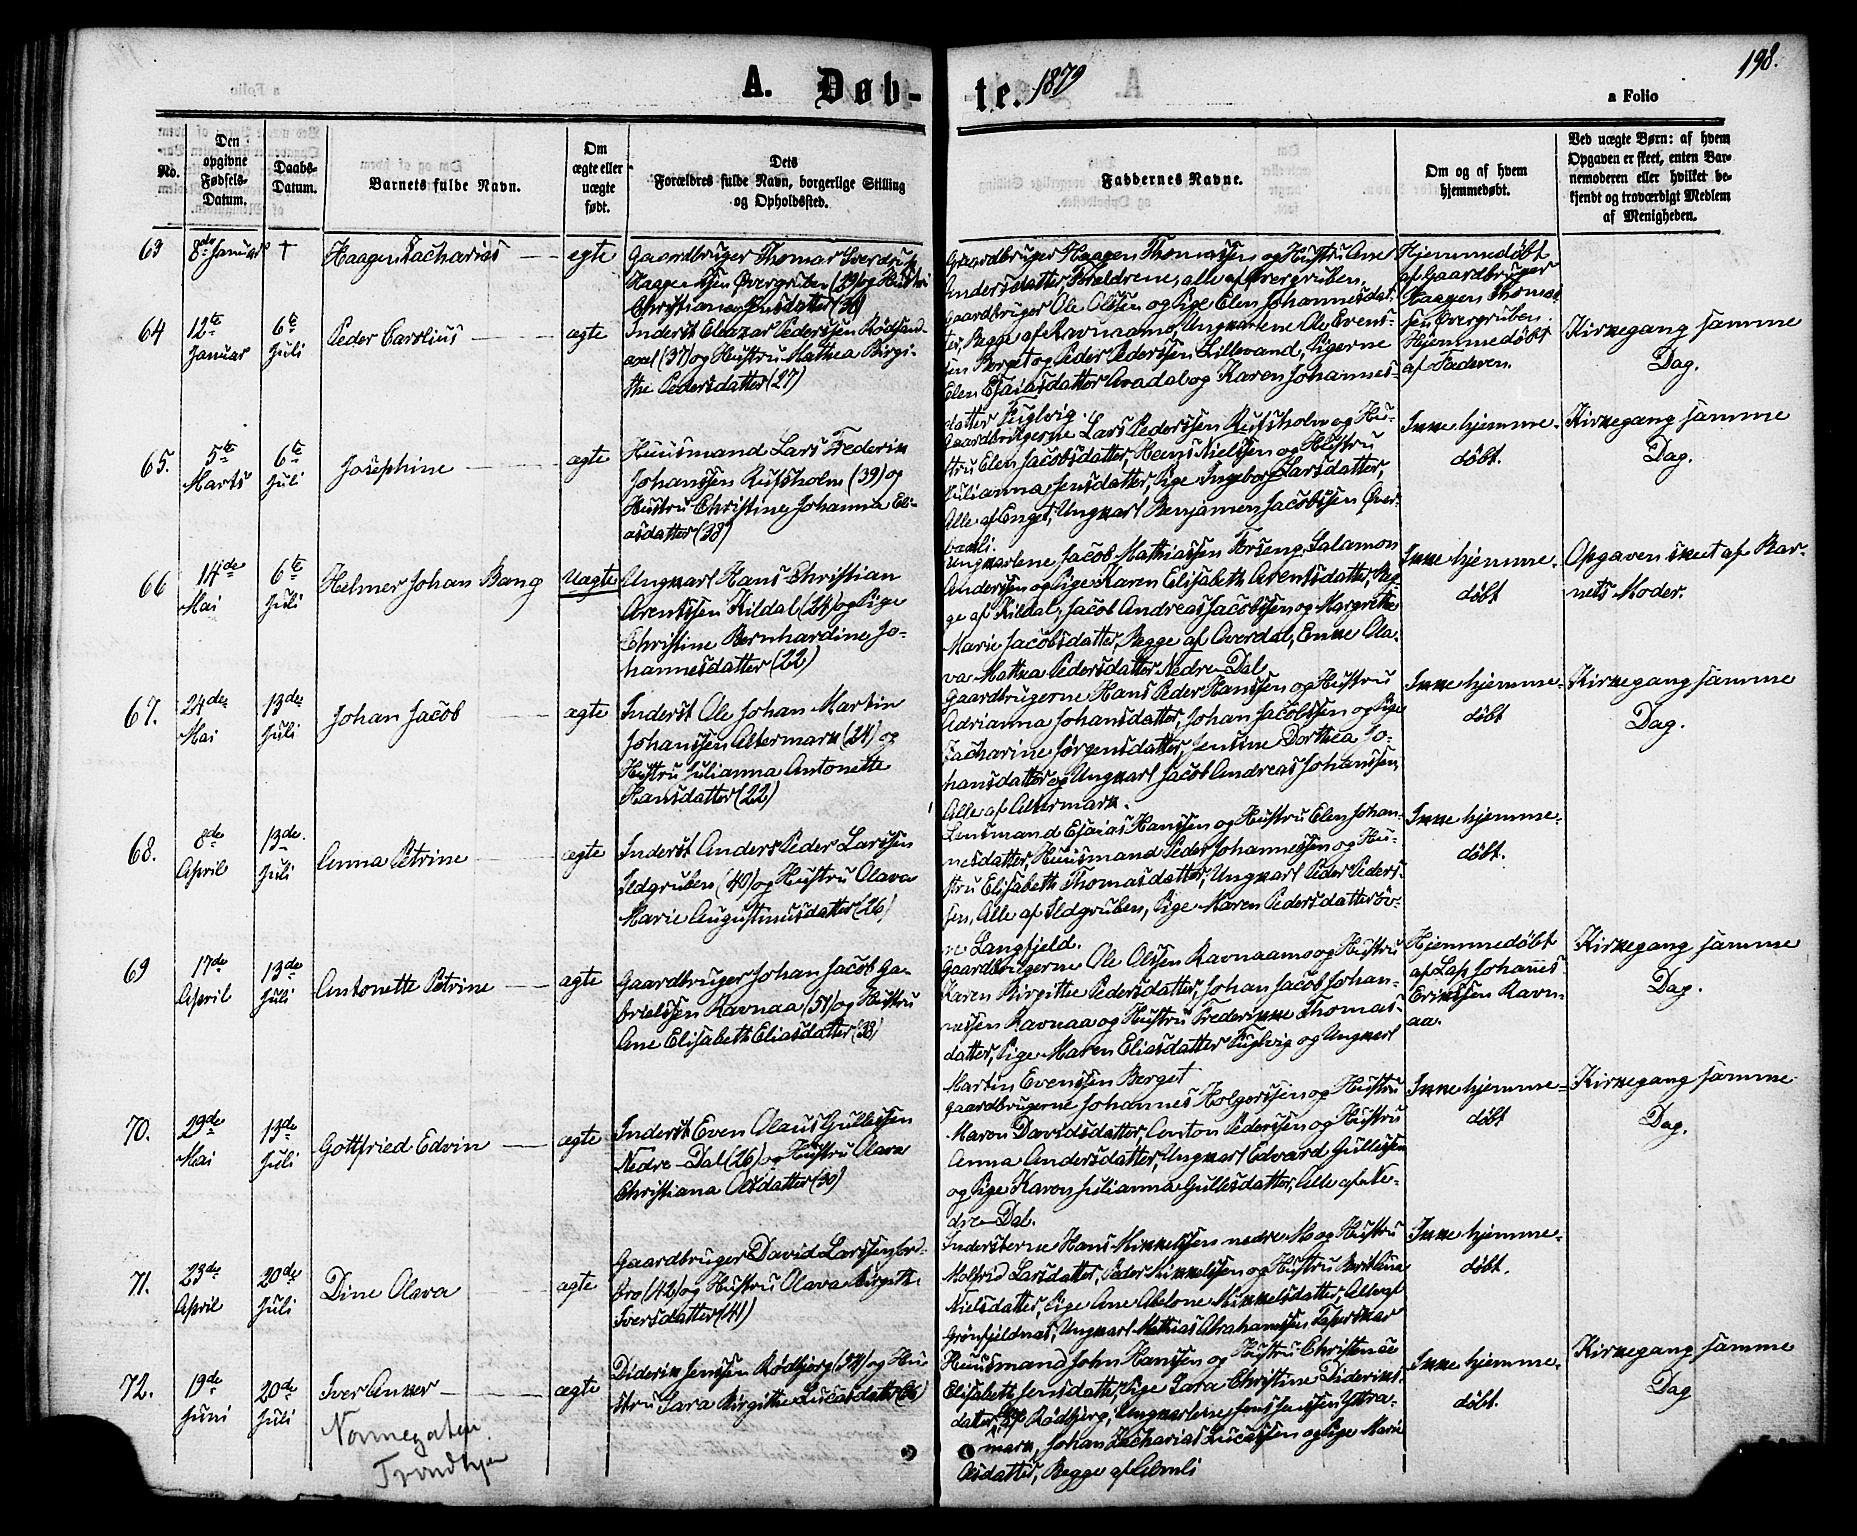 198.
A. Døb-te. 1879
a Folio
No.
Den
opgivne
Fødsels-
Datum.
Daabs-
Datum.
Barnets fulde Navn.
Om
ægte eller
uægte
født.
Dets
Forældres fulde Navn, borgerlige Stilling
og Opholdssted.
Faddernes Navne.
Om og af hvem
hjemmedøbt.
Ved uægte Børn: af hvem
Opgaven er skeet, enten Bar-
nemoderen eller hvilket be-
kjendt og troværdigt Medlem
af Menigheden.
63
8de Januar
†
Haagen Zacharias
egte
Gaardbruger Thomas Sverdrup
Haagenssen Øvergruben (39) og Hustru
Christiana
Gaardbruger Haagen Thomassen og Hustru Ane
Andersdatter, Forældrene, alle af Øvergruben,
Hjemmedøbt
af Gaardbruger
Haagen Thomas-
sen Øvergruben.
64
12te
Januar
6te
Juli
Peder Carolius
ægte
Inderst Eleazar Pederssen Rødsand-
axel (37) og Hustru Mathea Birgi-
the Pedersdatter (27)
Gaardbruger Ole Olssen og Pige Elen Johannesdat-
ter, Begge af Ravnaamo, Ungkarlene Ole Evens-
sen Berget og Peder Pederssen Lillevand, Pigerne
Elen Esaiasdatter Avadal og Karen Johannes-
datter Fuglvig.
Hjemmedøbt
af Faderen.
Kirkegang samme
Dag.
65.
5te
Marts
6te
Juli
Josephine
ægte
Huusmand Lars Frederik
Johanssen Rufsholm (39) og
Hustru Christine Johanna Eli-
asdatter (38)
Gaardbrugerne Lars Pederssen Rufsholm og Hu-
stru Elen Jacobsdatter, Heens Nielssen og Hustru
Julianna Jensdatter, Pige Ingeborg Larsdatter,
Alle af Enget, Ungkarl Benjamen Jacobssen Øver-
Ikke hjemme-
døbt.
Kirkegang samme
Dag.
66
14de
Mai
6te
Juli
Helmer Johan Bang
Uægte
Ungkarl Hans Christian
Arentssen Kildal (24) og Pige
Christine Bernhardine Jo-
hannesdatter (22)
Ungkarlene Jacob Mathiassen Forseng, Salamon
Anderssen og Pige Karen Elisabeth Arentsdatter, Beg-
ge af Kildal, Jacob Andreas Jacobssen og Margrethe
Marie Jacobsdatter, Begge af Overdal, Enke Ola-
va Mathea Pedersdatter Nedre-Dal
Ikke hjemme-
døbt
Opgaven skeet af Bar-
nets Moder.
67.
24de
Mai
13de
Juli
Johan Jacob
ægte
Inderst Ole Johan Martin
Johanssen Altermark (24) og
Hustru Julianna Antonette
Hansdatter (22)
Gaardbrugerne Hans Peder Hanssen og Hustru
Adrianna Johansdatter, Johan Jacobssen og Pige
Zacharine Jørgensdatter, Jensine Dorthea Jo-
hansdatter og Ungkarl Jacob Andreas Johanssen,
Alle af Altermark.
Ikke hjemme-
døbt
Kirkegang samme
Dag.
68.
8de
April
13de
Juli
Anna Petrine
ægte
Inderst Anders Peder Larssen
Ildgruben (40) og Hustru Olava
Marie Augustinusdatter (26)
Lensmand Esaias Hanssen og Hustru Elen Johan-
nesdatter, Huusmand Peder Johannessen og Hu-
stru Elisabeth Thomasdatter, Ungkarl Peder Peders-
sen, Alle af Ildgruben, Pige Maren Pedersdatter øv-
re Langfjeld.
Ikke hjemme-
døbt.
69
17de
April
13de
Juli
Antonette Petrine
ægte
Gaardbruger Johan Jacob Ga-
brielssen Ravnaa (51) og Hustru
Ane Elisabeth Eliasdatter (38)
Gaardbrugerne Ole Olssen Ravnaamo og Hustru
Karen Birgitte Pedersdatter, Johan Jacob Johan-
nessen Ravnaa og Hustru Frederikke Thomas-
datter, Pige Maren Eliasdatter Fuglvig og Ungkarl
Martin Evenssen Berget
Hjemmedøbt
af Lap Johannes
Erikssen Ravn-
aa.
Kirkegang samme
Dag.
70.
29de
Mai
13de
Juli
Gottfried Edvin
ægte
Inderst Even Olaus Gullessen
Nedre-Dal (26) og Hustru Olava
Christiana Olsdatter (30)
Gaardbrugerne Johannes Holgerssen og Hustru
Maren Davidsdatter, Anton Pederssen og Hustru
Anna Andersdatter, Ungkarl Edvard Gullessen
og Pige Karen Julianna Gullesdatter, Alle af Ne-
dre-Dal.
Ikke hjemme-
døbt
Kirkegang samme
Dag.
71.
23de
April
20de
Juli
Dine Olava
ægte
Gaardbruger David Larssen Jord-
bro (42) og Hustru Olava Birgith
Iversdatter (41)
Indersterne Hans Mikkelssen nedre Mo og Hustru
Molfrid Larsdatter, Peder Mikkelssen og Hustru Beritlina
Nielsdatter, Pige Ane Abelone Mikkelsdatter, Alle af
Grønfjeldnæs, Ungkarl Mathias Abrahamssen
Ikke hjemme-
døbt.
72.
19de
Juni
20de
Juli
Iver Anker
Nonnegaten.
Trondhjem
ægte
Diderik Jenssen Rødbjerg (54) og Hu-
stru Sara Birgitte Lucasdatter
Huusmand John Hanssen og Hustru Christence
Elisabeth Jensdatter, Pige Sara Christine Dideriks-
datter, Rødbjerg, Ungkarlene Jens Jenssen Yttra-
mark, Johan Zacharias Lucassen og Pige Marie
Olsdatter, Begge af Almli
Ikke hjemme-
døbt.
Kirkegang samme
Dag